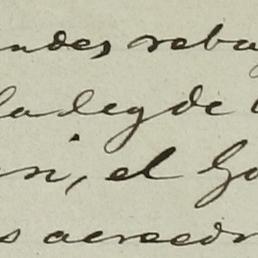 ndes reba
la ley de
ni, el Go
s acreed